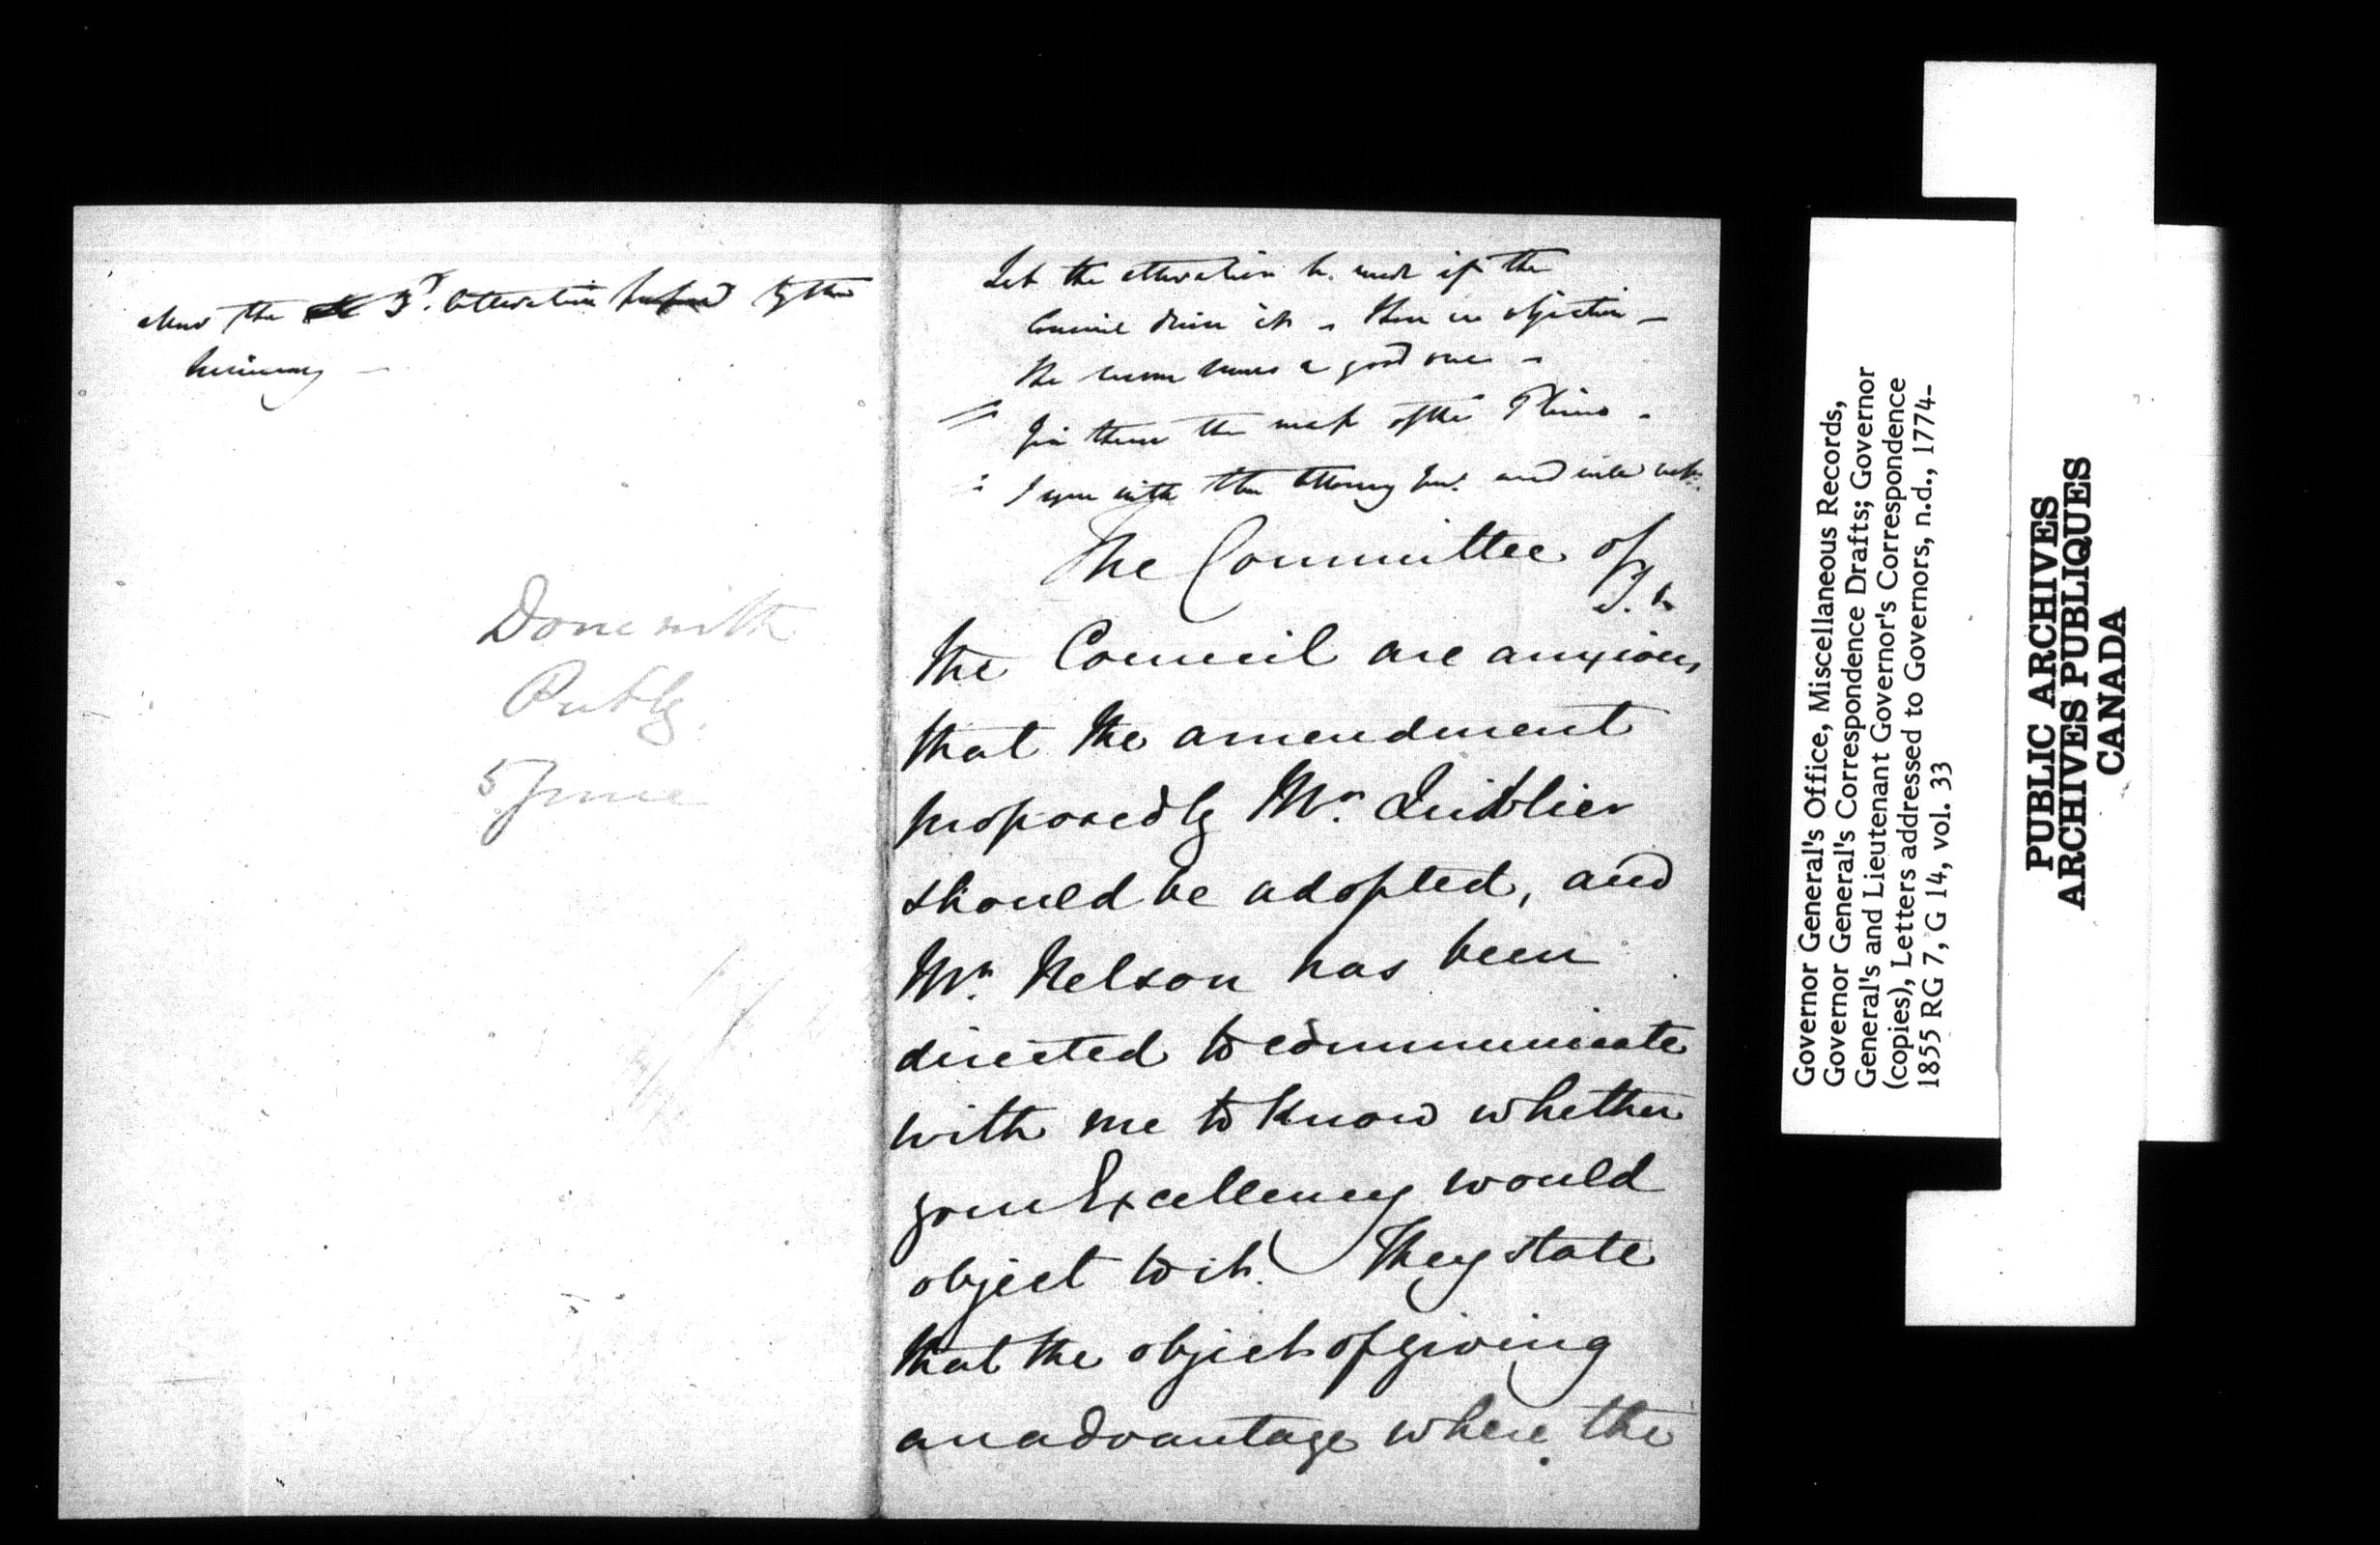 the 3d. alteration proposed by the
Seminary —
Done with
Publg.
5 June
Let the alteration be made if the
Council desire it – there is no objection –
the reason seems a good one –
the map of the
I agree with the Attorney Genl. and
The Committee of
the Council are anxious
that the amendment
proposed by Mr. Quiblier
should be adopted, and
Mr. Nelson has been
directed to communicate
with me to know whether
your Excellency would
object to it. They state
that the object of giving
an advantage where the
Governor General's Office, Miscellaneous Records,
Governor General's Correspondence Drafts; Governor
General's and Lieutenant Governor's Correspondence
(copies), Letters addressed to Governors, n.d., 1774-
1855 RG 7, G 14, vol. 33
PUBLIC ARCHIVES
ARCHIVES PUBLIQUES
CANADA